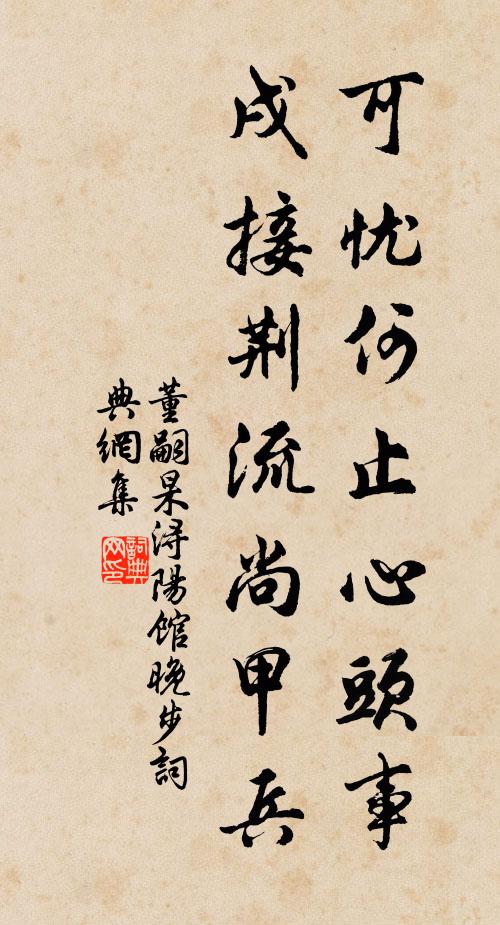 可忧何止心頭事
戍接荆流尚甲兵
董嗣杲浔陽馆晚步詞
典網集
詞典网印